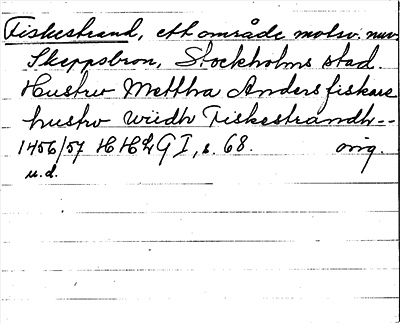 Fiskestrand, ett område motsv. nuv.
Skeppsbron, Stockholms stad.
Hustrv Mettha Anders fiskare
hustrv widh Fiskestrandh--
1456/57 HHLG I, s. 68. orig.
u.d.